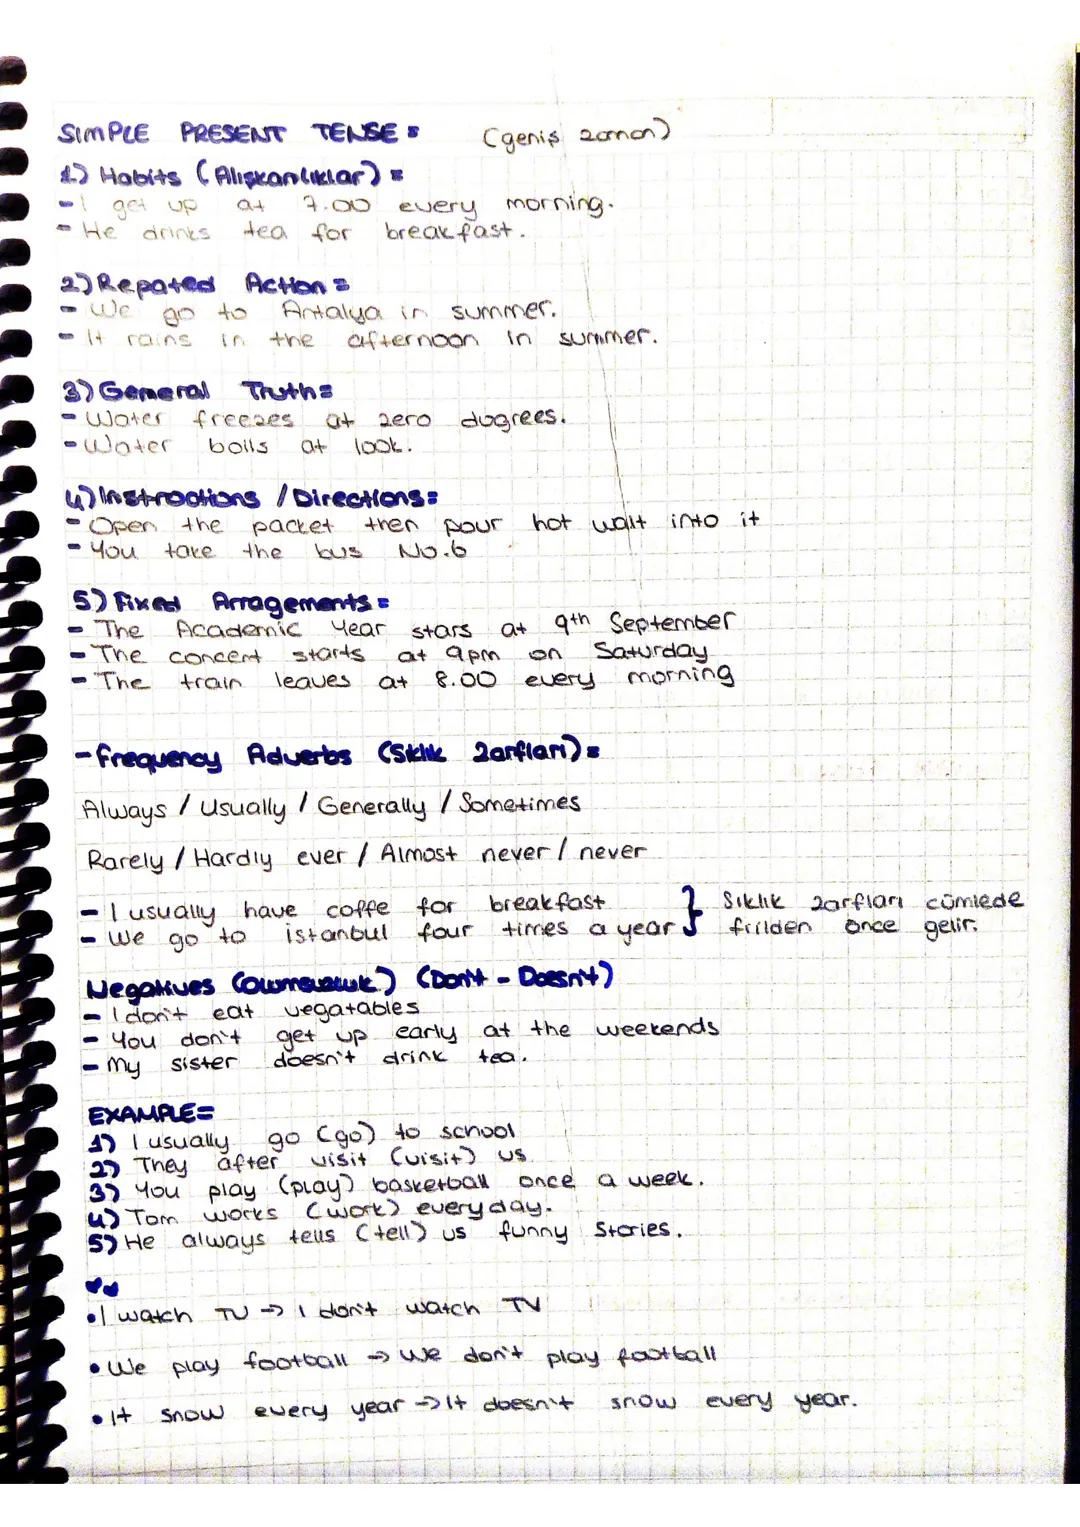 SIMPLE PRESENT TENSE = (geniş zaman)
1) Habits (Alışkanlıklar) =
- I get up at 7.00 every morning.
- He drinks tea for breakfast.
2) Repated Action =
- We go to Antalya in summer.
- It rains in the afternoon in summer.
3) General Truth =
- Water freezes at zero dugrees.
- Water boils at look.
4) Instroctions / Directions =
- Open the packet then pour hot wait into it
- You take the bus No.6
5) Fixed Arragements =
- The Academic Year stars at 9th September
- The concert starts at 9pm on Saturday
- The train leaves at 8.00 every morning
- Frequency Adverbs (Sıklık Zarfları) =
Always / Usually / Generally / Sometimes
Rarely / Hardly ever / Almost never / never
- I usually have coffe for breakfast } Sıklık zarfları cümlede
- We go to istanbul four times a year } fiilden önce gelir.
Negatives (Don't - Doesn't)
- I don't eat vegatables
- You don't get up early at the weekends
- My sister doesn't drink tea.
EXAMPLE =
1) I usually go (go) to school
2) They after visit (visit) us.
3) You play (play) basketball once a week.
4) Tom works (work) everyday.
5) He always tells (tell) us funny Stories.
• I watch TV → I don't watch TV
• We play football → We don't play football
• It snow every year → It doesn't snow every year.